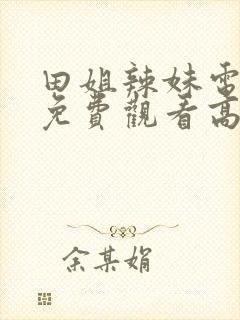 田姐辣妹電
免費觀看高
余某娟